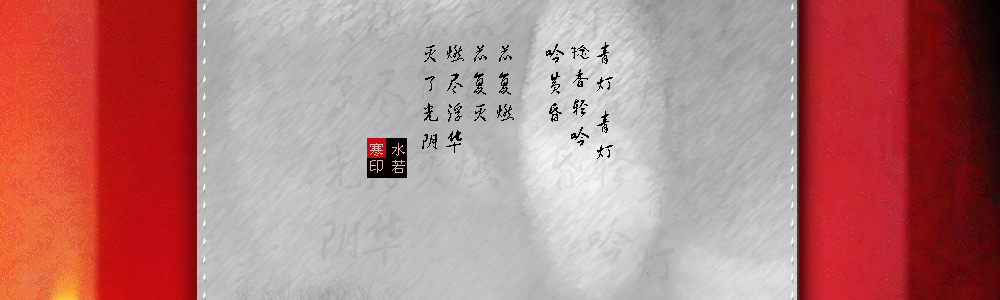 青灯 青灯
捻香轻吟
吟黄昏
芯复燃
芯复灭
燃尽浮华
灭了光阴
水若
寒印